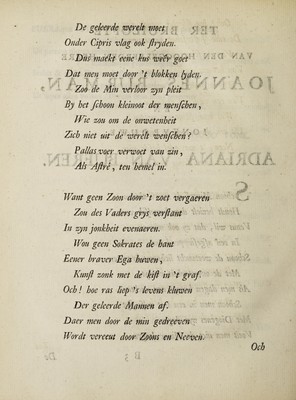 De geleerde werelt moet
Onder Cipris vlag ook stryden.
Dus maekt eene kus weêr goet
Dat men moet door 't blokken lyden.
Zoo de Min verloor zyn pleit
By het schoon kleinoot der menschen,
Wie zou om de onwetenheit
Zich niet uit de werelt wenschen?
Pallas voer verwoet van zin,
Als Astré, ten hemel in.
Want geen Zoon door 't zoet vergaeren
Zou des Vaders grys verstant
In zyn jonkheit evenaeren.
Won geen Sokrates de hant
Eener braver Ega huwen,
Kunst zonk met de kist in 't graf.
Och! hoe ras liep 's levens kluwen
Der geleerde Mannen af.
Daer men door de min gedreeven
Wordt vereeut door Zoons en Neeven.
Och